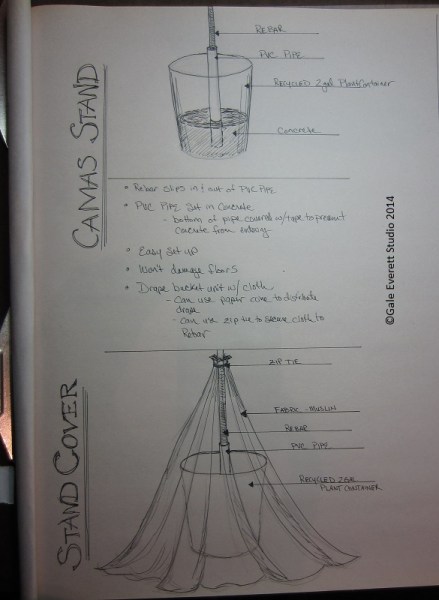 CAMAS STAND
REBAR
PVC PIPE
RECYCLED 2gal Plant Container
Concrete
• Rebar slips in & out of PVC PIPE
• PVC PIPE Set in Concrete
- bottom of pipe covered w/tape to prevent
concrete from
• Easy Set up
• Won't damage floors
• Drape bucket unit w/ cloth
- Can use paper cone to distribute
drape
- can use zip tie to secure cloth to
Rebar
STAND COVER
ZIP TIE
FABRIC - MUSLIN
REBAR
PVC PIPE
RECYCLED 2GAL
PLANT CONTAINER
©Gale Everett Studio 2014